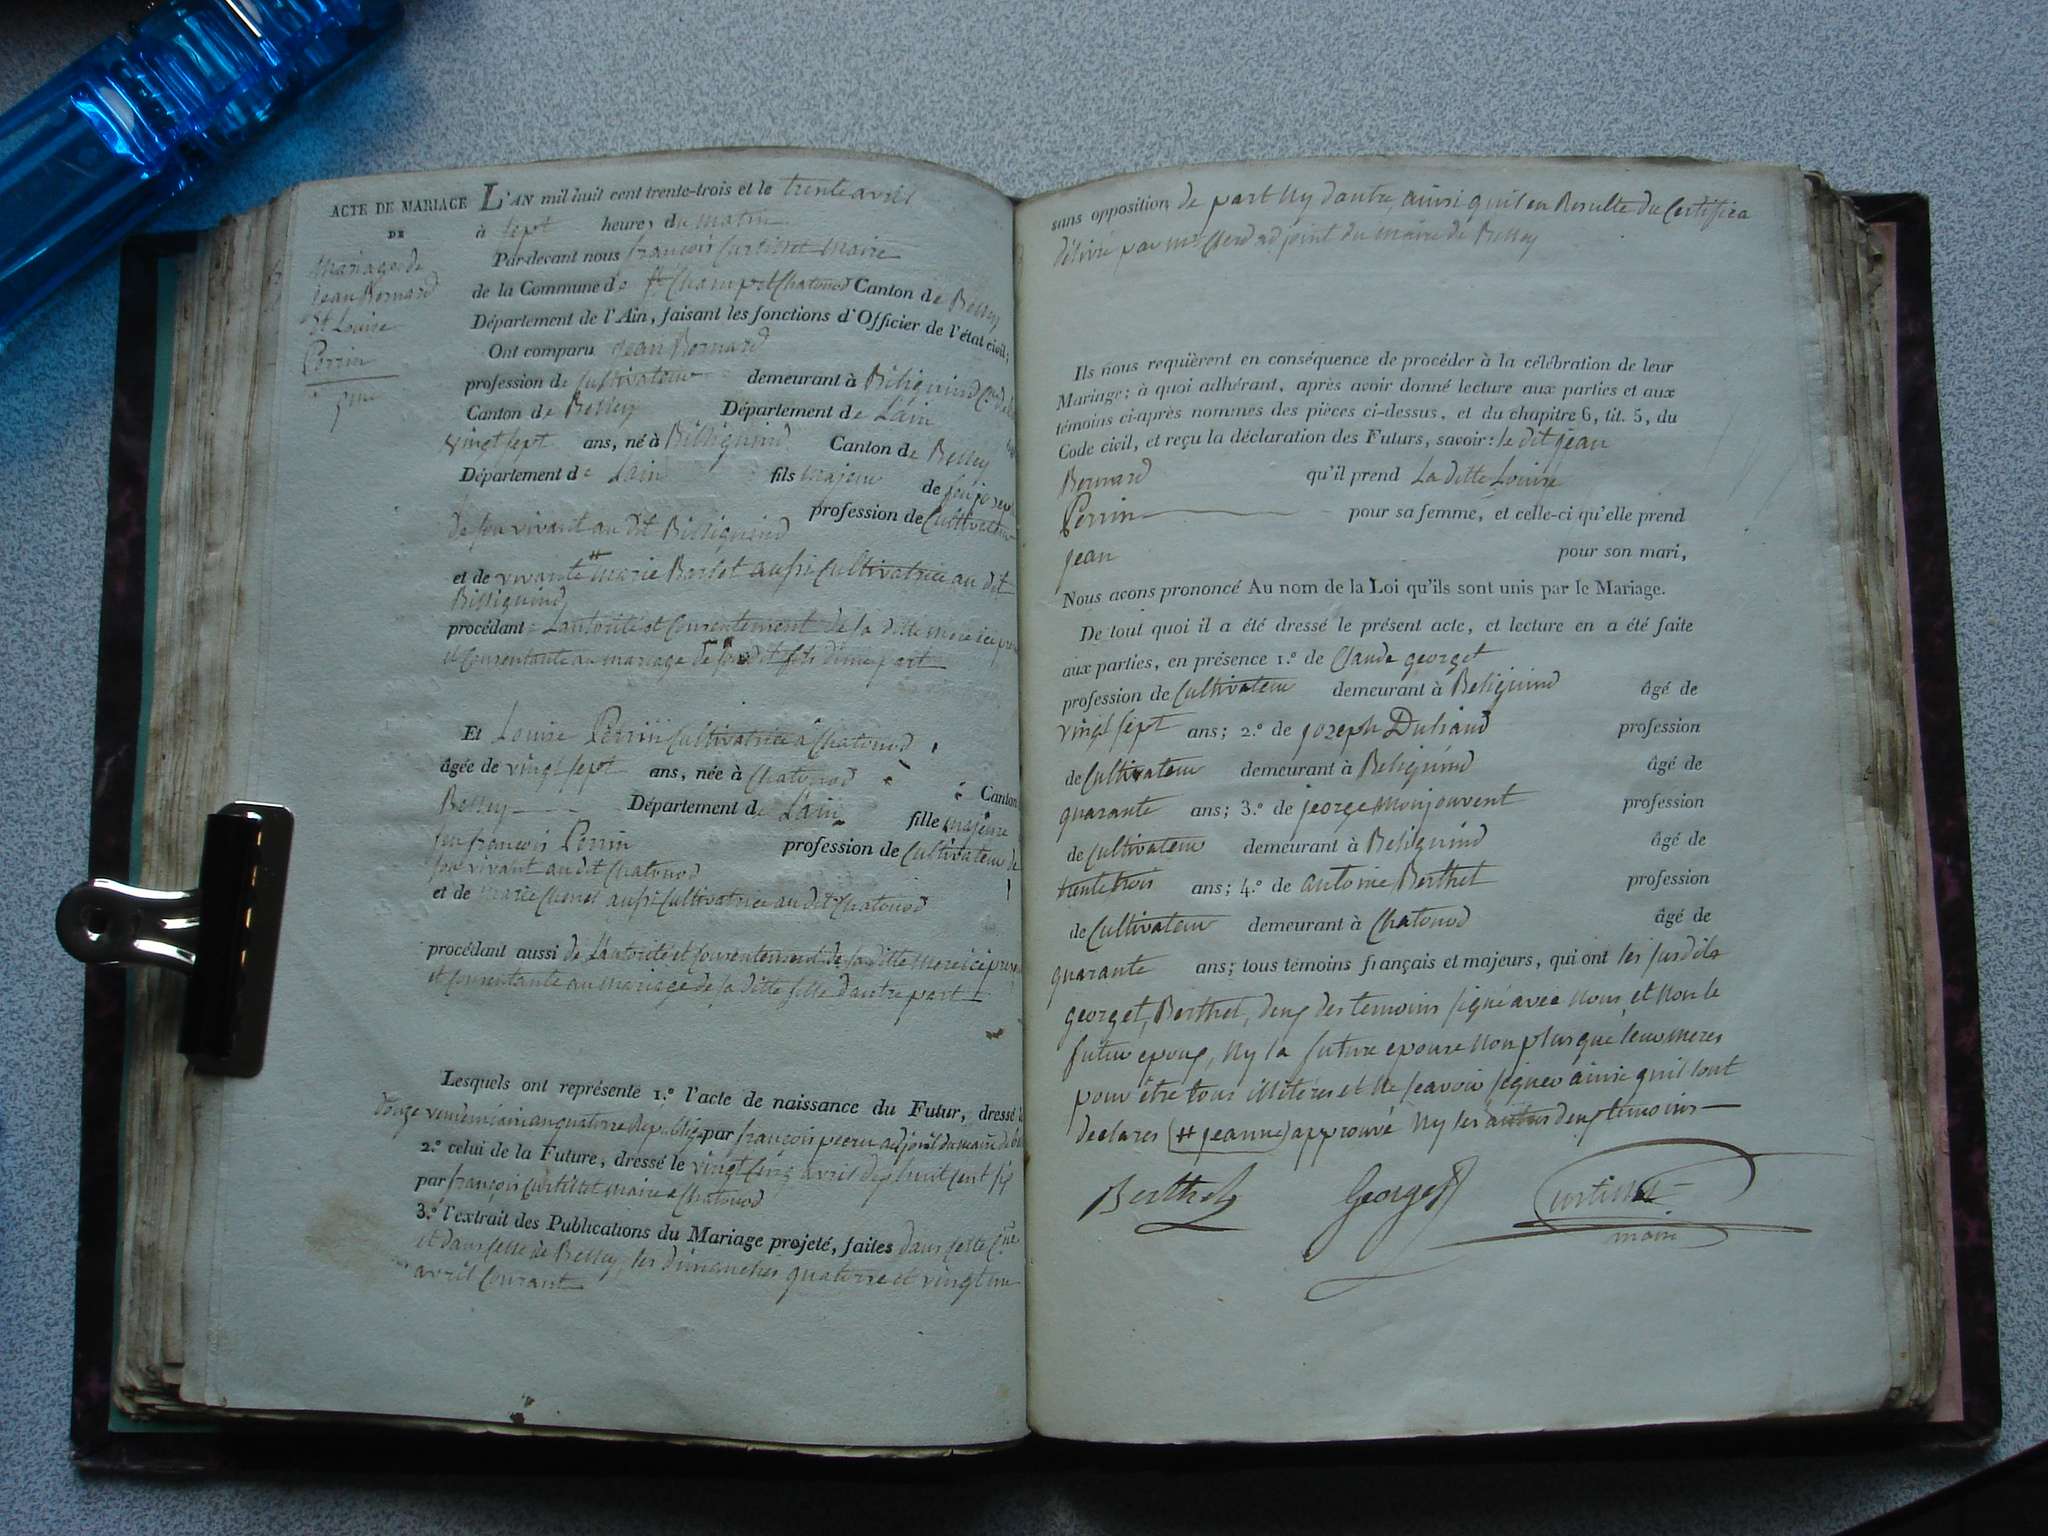 ACTE DE MARIAGE
DE
Mariage de
Jean Bernard
et Louise
Perrin
5me
L'AN mil huit cent trente-trois et le trente avril
à sept heures du matin
Par-devant nous françois Curtillet Maire
de la Commune de St Champ et Chatonod Canton de Belley
Département de l'Ain, faisant les fonctions d'Officier de l'état civil;
Ont comparu Jean Bernard
profession de Cultivateur demeurant à
Canton de Belley Département de Lain
vingt sept ans, né à Canton de Belley
Département de Lain fils majeur de feu
profession de Cultivateur
de son vivant au dit
et de vivante # marie aussi Cultivatrice au dit
procédant Lautorité et Consentement de sa ditte mere ici
et Consentante au mariage de dit fils d'une part
Et Louise Perrin Cultivatrice à Chatonod
âgée de vingt sept ans, née à Chatonod Canton
Belley Département de Lain fille majeure
feu françois Perrin profession de Cultivateur de
son vivant au dit Chatonod
et de marie aussi Cultivatrice au dit Chatonod
procédant aussi de Lautorité et Consentement de sa ditte mere ici
et Consentante au mariage de sa ditte fille d'autre part
Lesquels ont représenté 1.º l'acte de naissance du Futur, dressé
douze vendemiair an quatorze par françois adjoint du maire
2.º celui de la Future, dressé le vingt cinq avril dix huit cent six
par françois Curtillet maire a Chatonod
3.º l'extrait des Publications du Mariage projeté, faites dans cette Cne
et dans celle de Belley, les dimanches quatorze et vingt un
avril Courant
sans opposition de part Ny dautre, ainsi quil en Resulte du Certifica
délivré par mr adjoint du maire de Belley
Ils nous requièrent en conséquence de procéder à la célébration de leur
Mariage: à quoi adhérant, après avoir donné lecture aux parties et aux
témoins ci-après nommés des pièces ci-dessus, et du chapitre 6, tit. 5, du
Code civil, et reçu la déclaration des Futurs, savoir: le dit jean
Bernard qu'il prend La ditte Louise
Perrin pour sa femme, et celle-ci qu'elle prend
jean pour son mari,
Nous avons prononcé Au nom de la Loi qu'ils sont unis par le Mariage.
De tout quoi il a été dressé le présent acte, et lecture en a été faite
aux parties, en présence 1.º de Claude georget
profession de Cultivateur demeurant à Belignind âgé de
vingt sept ans; 2.º de jozeph profession
de Cultivateur demeurant à Belignind âgé de
quarante ans; 3.º de jeorge monjouvent profession
de Cultivateur demeurant à Belignind âgé de
trente trois ans; 4.º de antoine Berthet profession
de Cultivateur demeurant à Chatonod âgé de
quarante ans; tous témoins français et majeurs, qui ont les susdits
georget, Berthet, deux des temoins signé avec nous et Non le
futur epoux, Ny la future epouse Non plus que leur meres
pour être tous illitérés et Ne scavoir signer ainsi quil lont
declarés (# jeanne) approuvé Ny les autres deux temoins
Berthet Georget Curtillet
maire